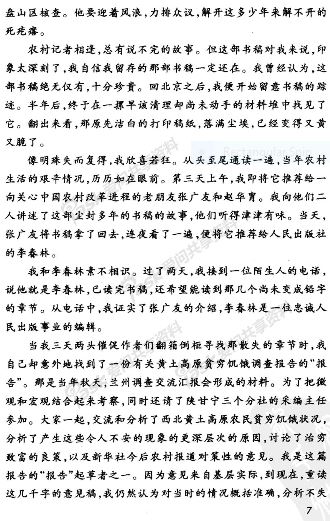 盘山区核查。他要迎着风浪,力排众议,解开这多少年来解不开的
死疙瘩。
农村记者相逢,总有说不完的故事。但这部书稿对我来说,印
象太深刻了,我自信我留存的那部书稿一定还在。我曾经认为,这
部书稿绝无仅有,十分珍贵。回北京之后,我便开始留意书稿的踪
迹。半年后,终于在一摞早该清理却尚未动手的材料堆中找见了
它。翻出来看,那原先洁白的打印稿纸,落满尘埃,已经变得又黄
又脆了。
像明珠失而复得,我欣喜若狂。从头至尾通读一遍,当年农村
生活的艰辛情况,历历如在眼前。第三天上午,我即将它推荐给一
向关心中国农村改革进程的老朋友张广友和赵华育。我向他们二
人讲述了这部尘封多年的书稿的故事,他们听得津津有味。当天,
张广友将书稿拿了回去,连夜看了一遍,便将它推荐给人民出版社
的李春林。
我和李春林素不相识。过了两天,我接到一位陌生人的电话,
说他就是李春林,已读完书稿,还希望能读到那几个尚未变成铅字
的章节。从电话中,我证实了张广友的介绍,李春林是一位忠诚人
民出版事业的编辑。
当我三天两头催促作者们翻箱倒柜寻找那散失的章节时,我
自己却意外地找到了一份有关黄土高原贫穷饥饿调查报告的“报
告”。那是当年秋天,兰州调查交流汇报会形成的材料。为了把微
观和宏观结合起来考察,同时还请了陕甘宁三个分社的采编主任
参加。大家一起,交流和分析了西北黄土高原农民贫穷饥饿状况,
分析了产生这些令人不安的现象的更深层次的原因,讨论了治穷
致富的良策,以及新华社今后农村报道对策性的意见。我是这篇
报告的“报告”起草者之一。因为意见来自基层实际,到现在,重读
这几千字的意见稿,我仍然认为对当时的情况概括准确,分析不失
7